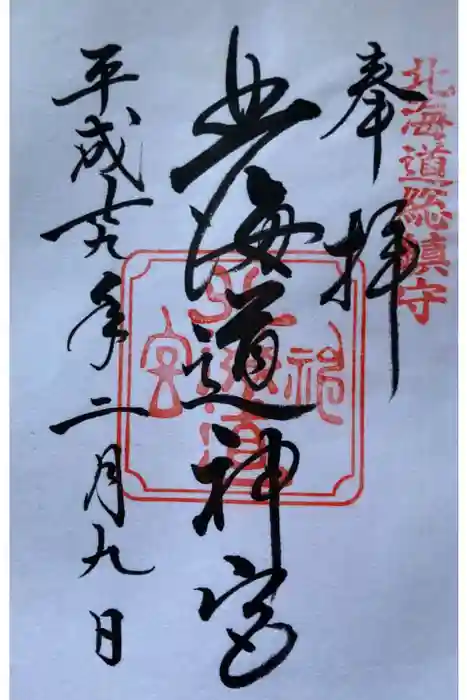 北海道総鎮守
奉拝
北海道神宮
北海道神宮
平成廿九年二月九日